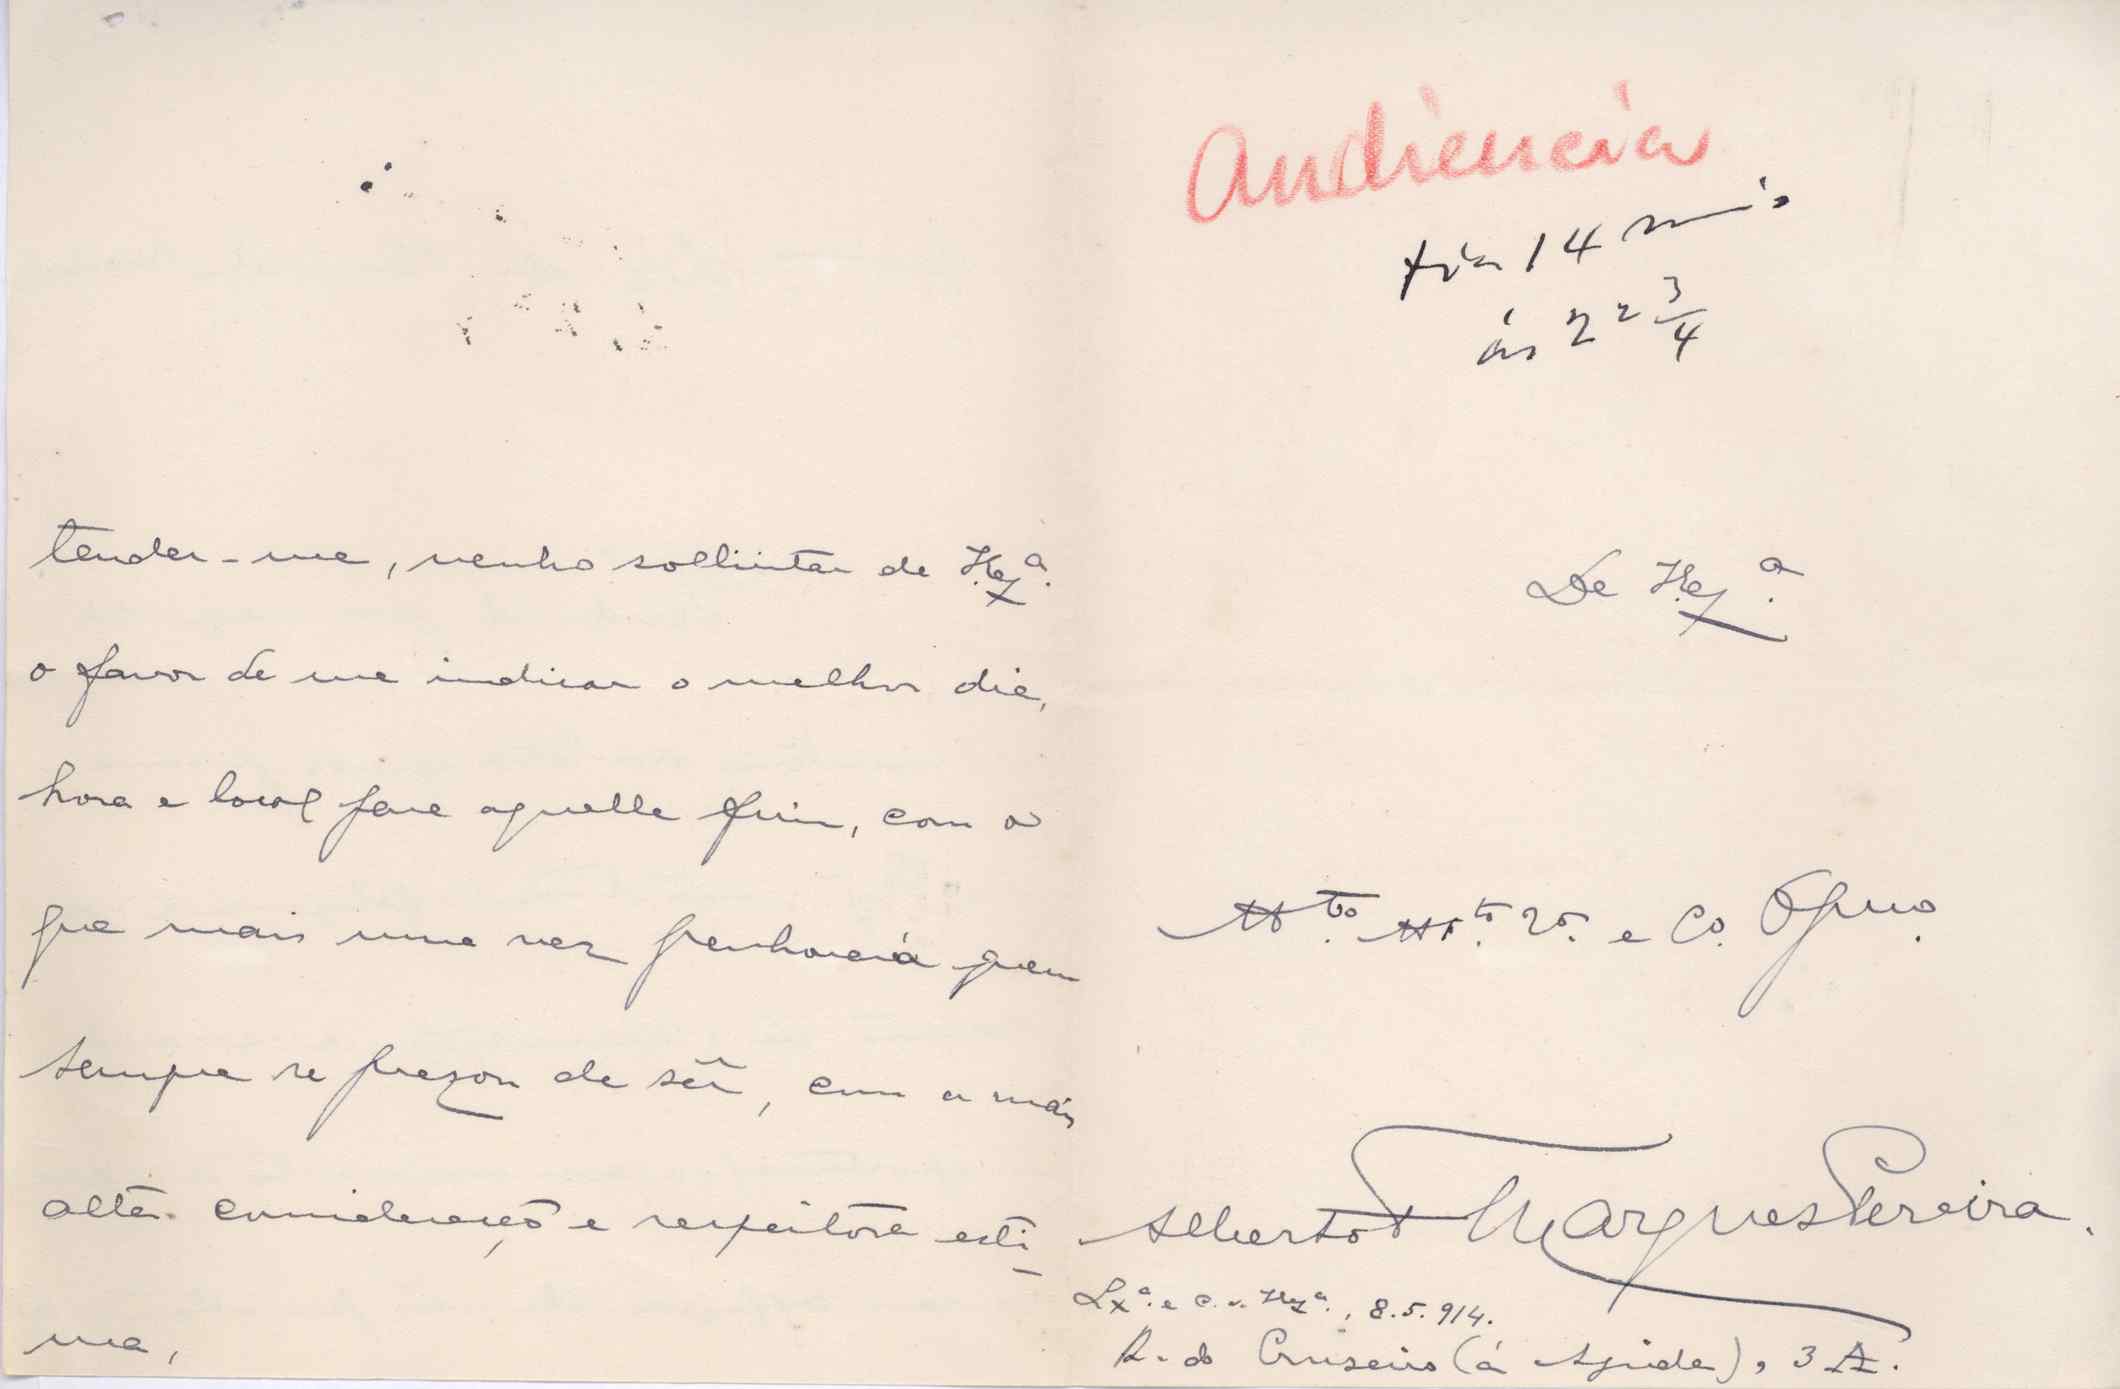 tender-me, venho sollicitar de V. Exª.
o favor de me indicar o melhor dia,
hora e local para aquelle fim, com o
que mais uma vez penhorará quem
sempre se prezou de sêr, com a mais
alta consideração e respeitosa esti-
ma,
Audiencia
dia 14 maio
ás 2 2 3/4
De V. Exª.
Attº. Mtº. Vº. e Cº. Obgmo.
Alberto Marques Pereira.
Lxª. e c. v. Exª., 8.5.914.
R. do Cruseiro (á Ajuda), 3 A.